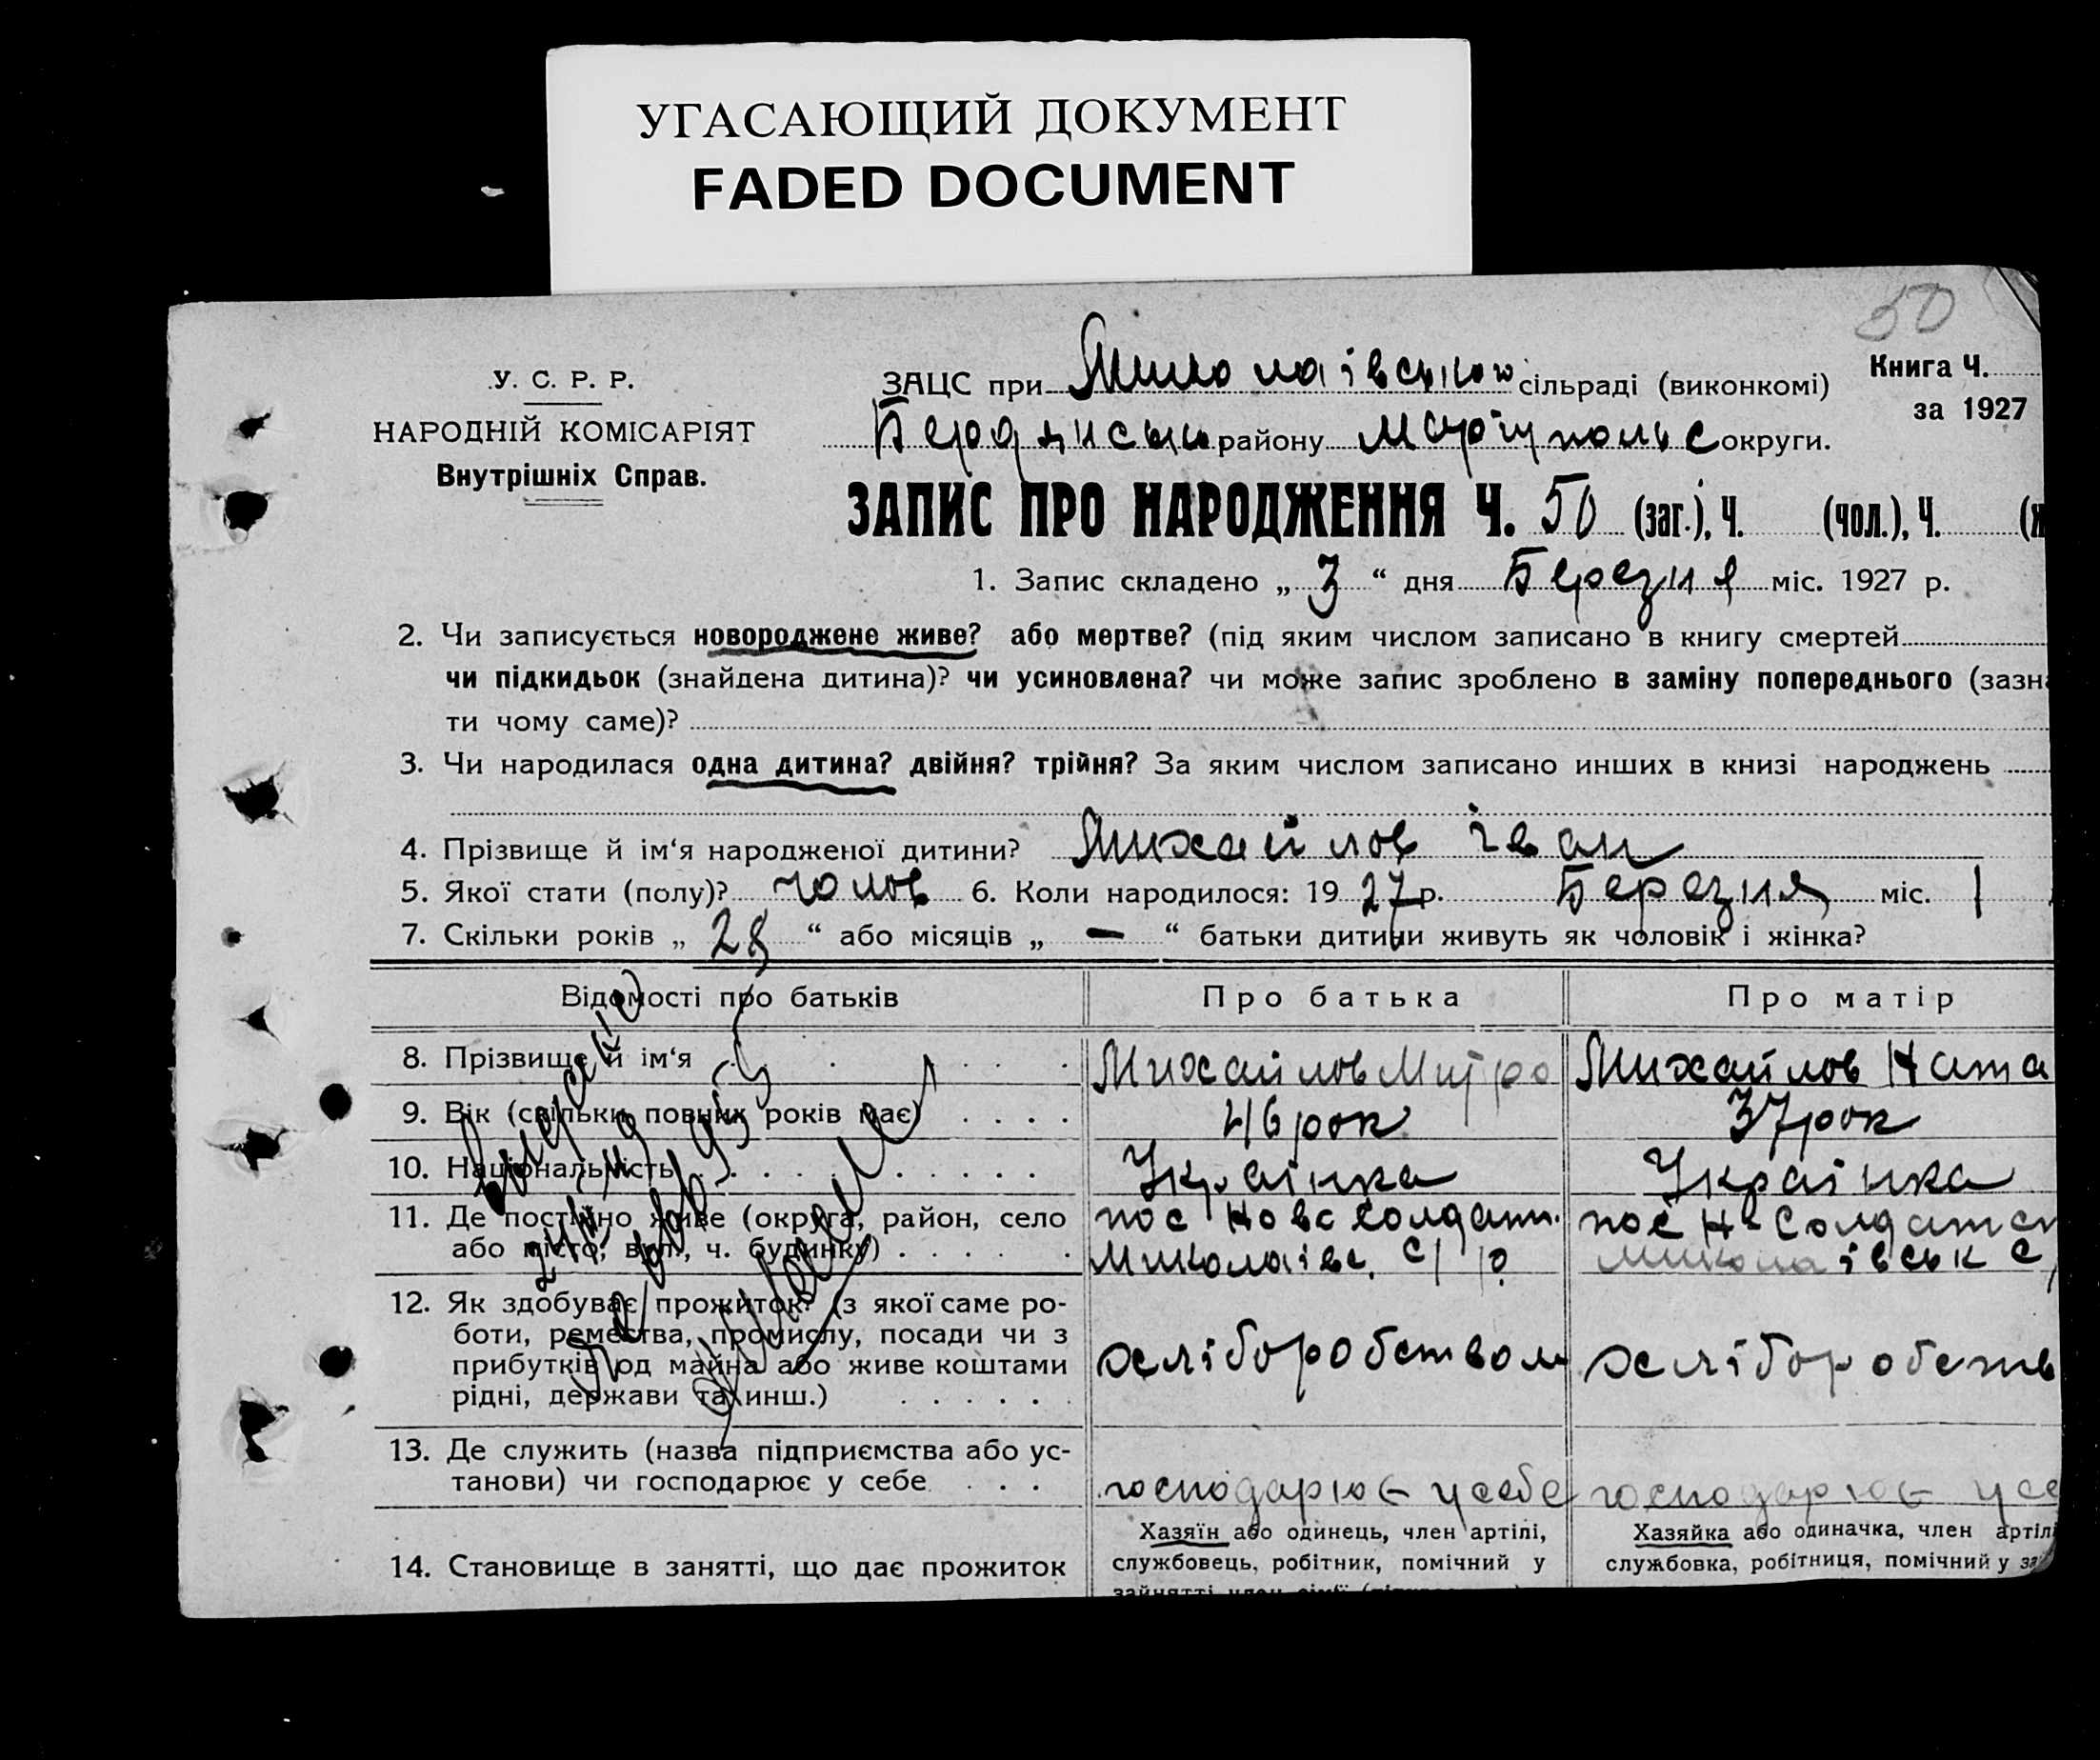 УГАСАЮЩИЙ ДОКУМЕНТ
FADED DOCUMENT
50
У. С. Р. Р.
НАРОДНІЙ КОМІСАРІЯТ
Внутрішніх Справ.
ЗАЦС при Миколаівською сільраді (виконкомі)
Книга Ч.
за 1927
району Маріупольс округи.
ЗАПИС ПРО НАРОДЖЕННЯ Ч. 50 (заг.), Ч. (чол.), Ч. (ж
1. Запис складено „ 3 “ дня Березня міс. 1927 р.
2. Чи записується новороджене живе? або мертве? (під яким числом записано в книгу смертей
чи підкидьок (знайдена дитина)? чи усиновлена? чи може запис зроблено в заміну попереднього (зазна
ти чому саме)?
3. Чи народилася одна дитина? двійня? трійня? За яким числом записано инших в книзі народжень
4. Прізвище й ім‘я народженої дитини? Михайлов Іван
5. Якої стати (полу)? чолов 6. Коли народилося: 19 27 р. Березня міс. 1
7. Скільки років „ 28 “ або місяців „ — “ батьки дитини живуть як чоловік і жінка?
Відомості про батьків Про батька Про матір
8. Прізвище й ім‘я . . . . Михайлов Митро Михайлов Ната
9. Вік (скільки повних років має) . . . . 46 рок 37 рок
10. Національність . . . . . . . . . Украінка Украінка
11. Де постійно живе (округа, район, село пос Ново Солдатн. пос Нв Солдатсн
або місто, вул., ч. будинку) . . . . . Миколаівс. с/р Миколаівськ с/
12. Як здобуває прожиток? (з якої саме ро-
боти, ремества, промислу, посади чи з
прибутків од майна або живе коштами хліборобством хліборобств
рідні, держави та инш.) . . . . . .
13. Де служить (назва підприємства або ус-
танови) чи господарює у себе . . . господарює у себе господарює у се
Хазяїн або одинець, член артілі, Хазяйка або одиначка, член артілі
14. Становище в занятті, що дає прожиток службовець, робітник, помічний у службовка, робітниця, помічний у за